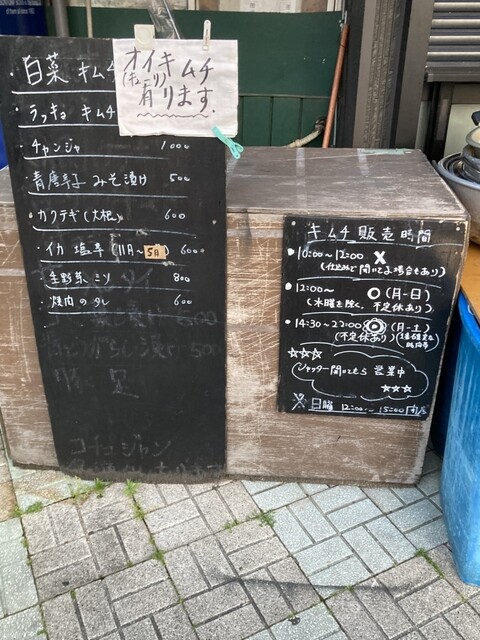 オイキムチ
(キューリ)
有ります。
・白菜 キムチ
・ラッキョ キムチ
・チャンジャ 1000
・青唐辛子 みそ漬け 500
・カクテギ(大根) 600
・イカ 塩辛 (11月〜5月) 600
・生野菜ミソ 800
・焼肉のタレ 600
コチュジャン
キムチ販売時間
●10:00〜12:00 ×
(仕込みにて開いてる場合もあり)
●12:00〜 ◎(月-日)
(水曜を除く、不定休あり)
●14:30〜22:00 ◎(月-土)
(不定休あり)
☆☆☆
シャッター開いてたら 営業中
☆☆☆
※日曜 12:00〜15:00閉店